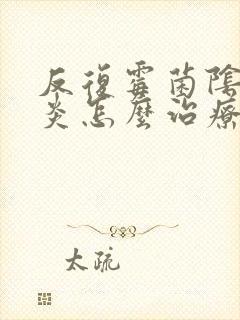 反復霉菌陰
炎怎麼治療
太疏